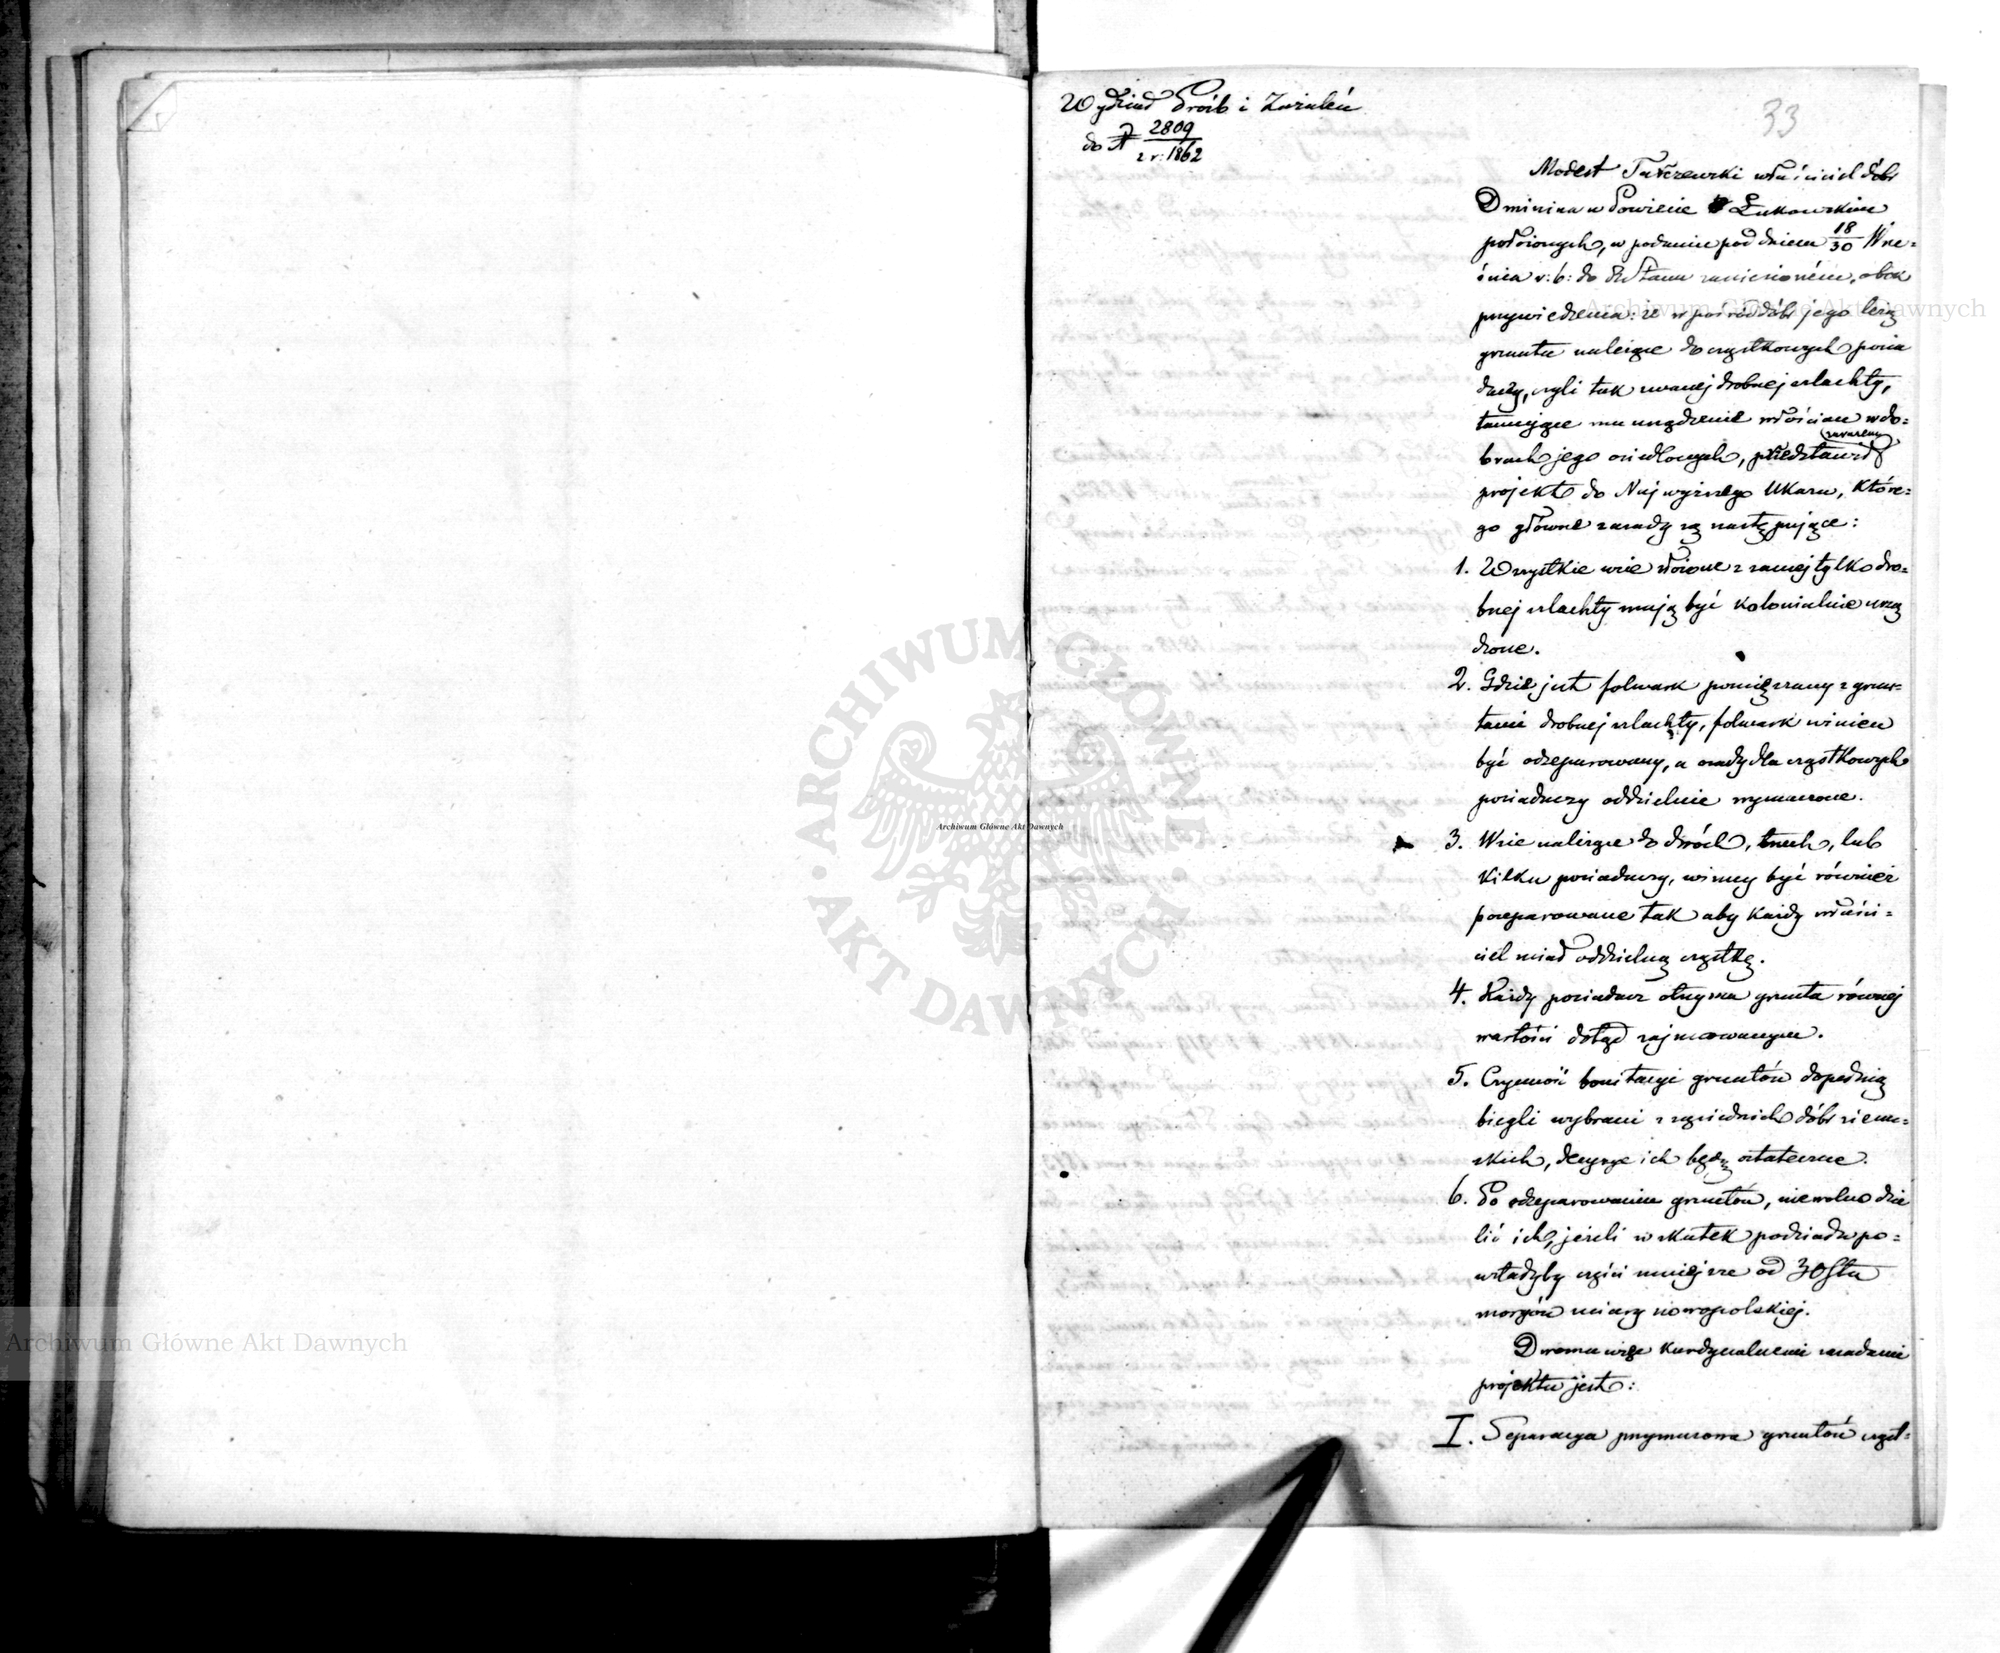 Wydział Próśb i Zażaleń
do № 2809
z r: 1862
33
Modest Tarczewski właściciel dóbr
Dminina w Powiecie Łukowskim
położonych, w podaniu pod dniem 18/30 Wrze=
śnia r: b: do R. Stanu zaniesioném, obok
przywiedzenia: że wpośród dóbr jego leżą
grunta należące do cząstkowych posia
daczy, czyli tak zwanej drobnej szlachty,
tamujące mu urządzenie włościan w do=
brach jego osiedlonych, przedstawił
projekt do Najwyższego Ukazu, które=
go główne zasady są następujące:
1. Wszystkie wsie złożone z samej tylko dro=
bnej szlachty mają być kolonialnie urzą
dzone.
2. Gdzie jest folwark pomięszany z grun=
tami drobnej szlachty, folwark winien
być odseparowany, a osady dla cząstkowych
posiadaczy oddzielnie wymierzone.
3. Wsie należące do dwóch, trzech, lub
kilku posiadaczy, winny być również
poseparowane tak aby każdy właści=
ciel miał oddzielną cząstkę.
4. Każdy posiadacz otrzyma grunta równej
wartości dotąd zajmowanym.
5. Czynność bonitacyi gruntów dopełnią
biegli wybrani z sąsiednich dóbr ziem=
skich, decyzye ich będą ostateczne.
6. Po odseparowaniu gruntów, niewolno dzie
lić ich, jeżeli w skutek podziału po=
wstałyby części mniejsze od 30stu
morgów miary nowopolskiej.
Dwoma więc kardynalnemi zasadami
projektu jest:
I. Separacya przymusowa gruntów cząst=
Archiwum Główne Akt Dawnych
Archiwum Główne Akt Dawnych
Archiwum Główne Akt Dawnych
ARCHIWUM GŁÓWNE • AKT DAWNYCH •